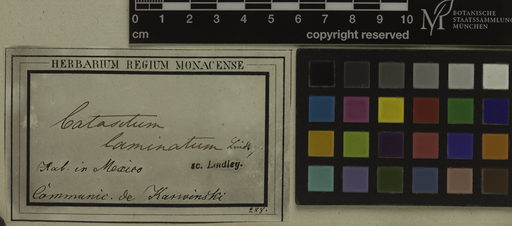 0 1 2 3 4 5 6 7 8 9 10
cm copyright reserved
M BOTANISCHE
STAATSSAMMLUNG
MÜNCHEN
HERBARIUM REGIUM MONACENSE
Catasetum
laminatum Lindl,
Hab. in Mexico sc. Lindley.
Communic. de Karwinski